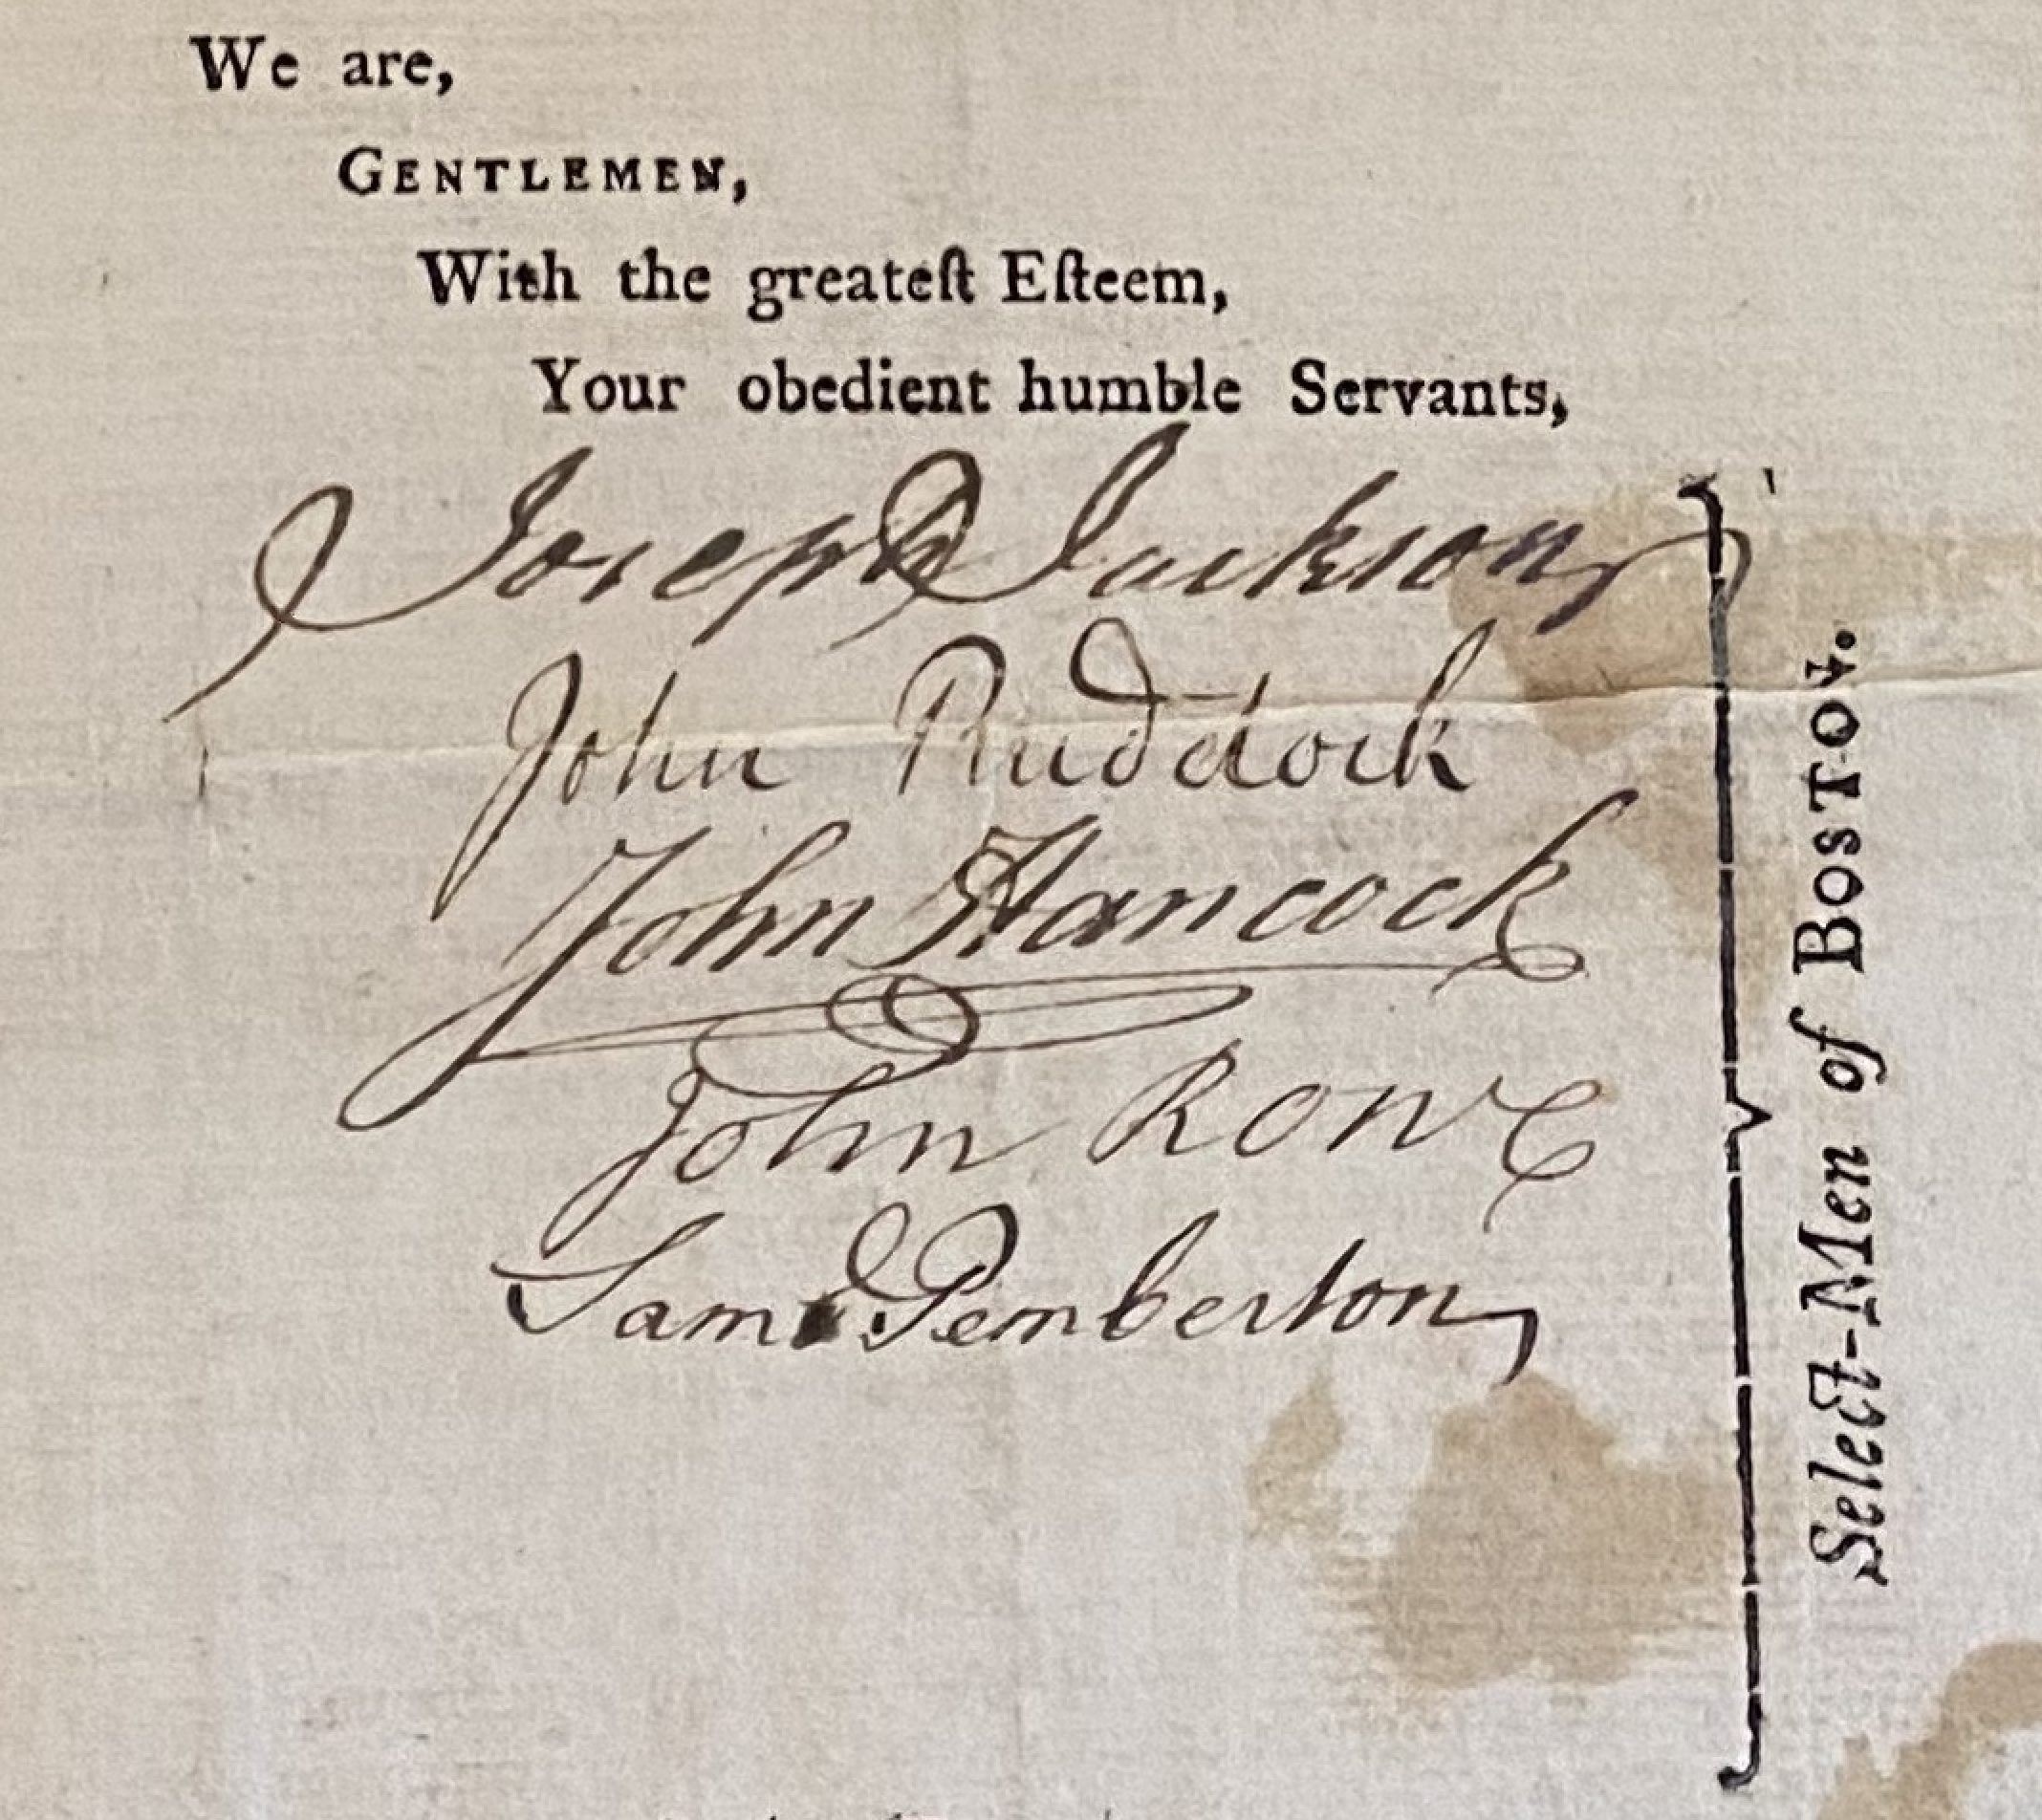 We are,
GENTLEMEN,
With the greateſt Eſteem,
Your obedient humble Servants,
Joseph Jackson
John Ruddock
John Hancock
John Rowe
Saml. Pemberton
Select-Men of BOSTON.